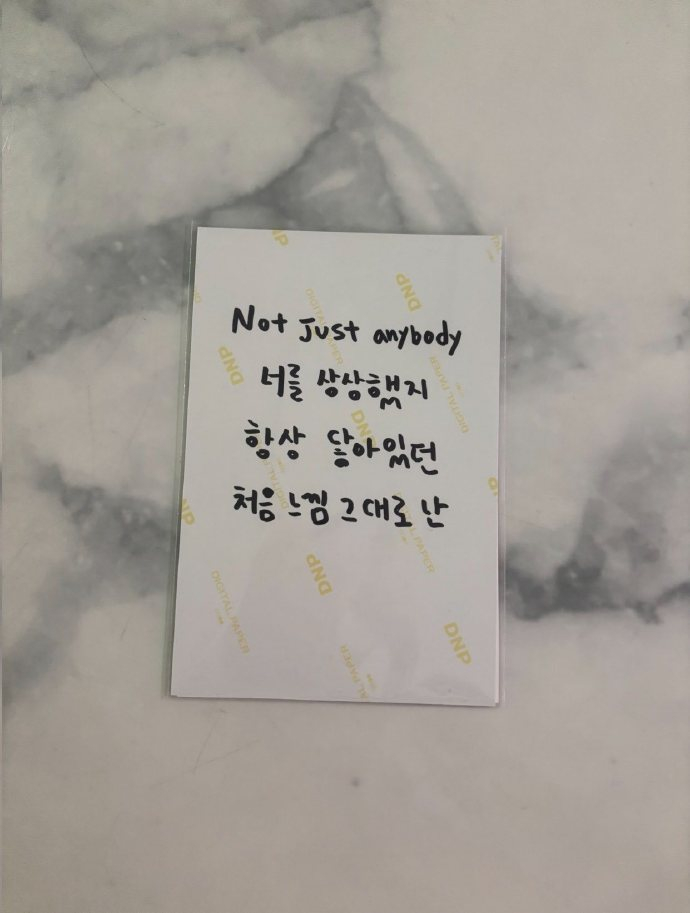 DNP
TAL
DNP
DIGITAL PAPER
Not Just anybody
DNP
DIGITAL PAPER
너를 상상했지
DNP
항상 닿아있던
처음 느낌 그대로 난
NP
DIGITAL PAPER
DNP
DIGITAL PAPER
DNP
AL PAPER